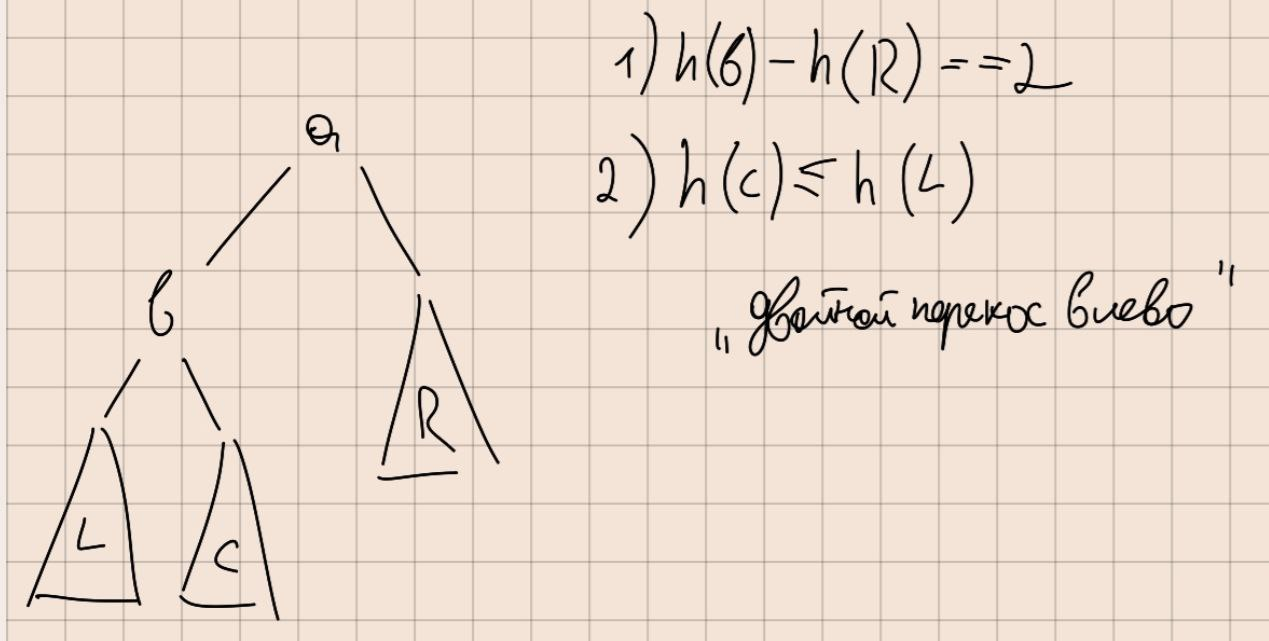 1) h(b) - h(R) == 2
a
2) h(c) ≤ h(L)
b
„двойной перекос влево"
R
L
C